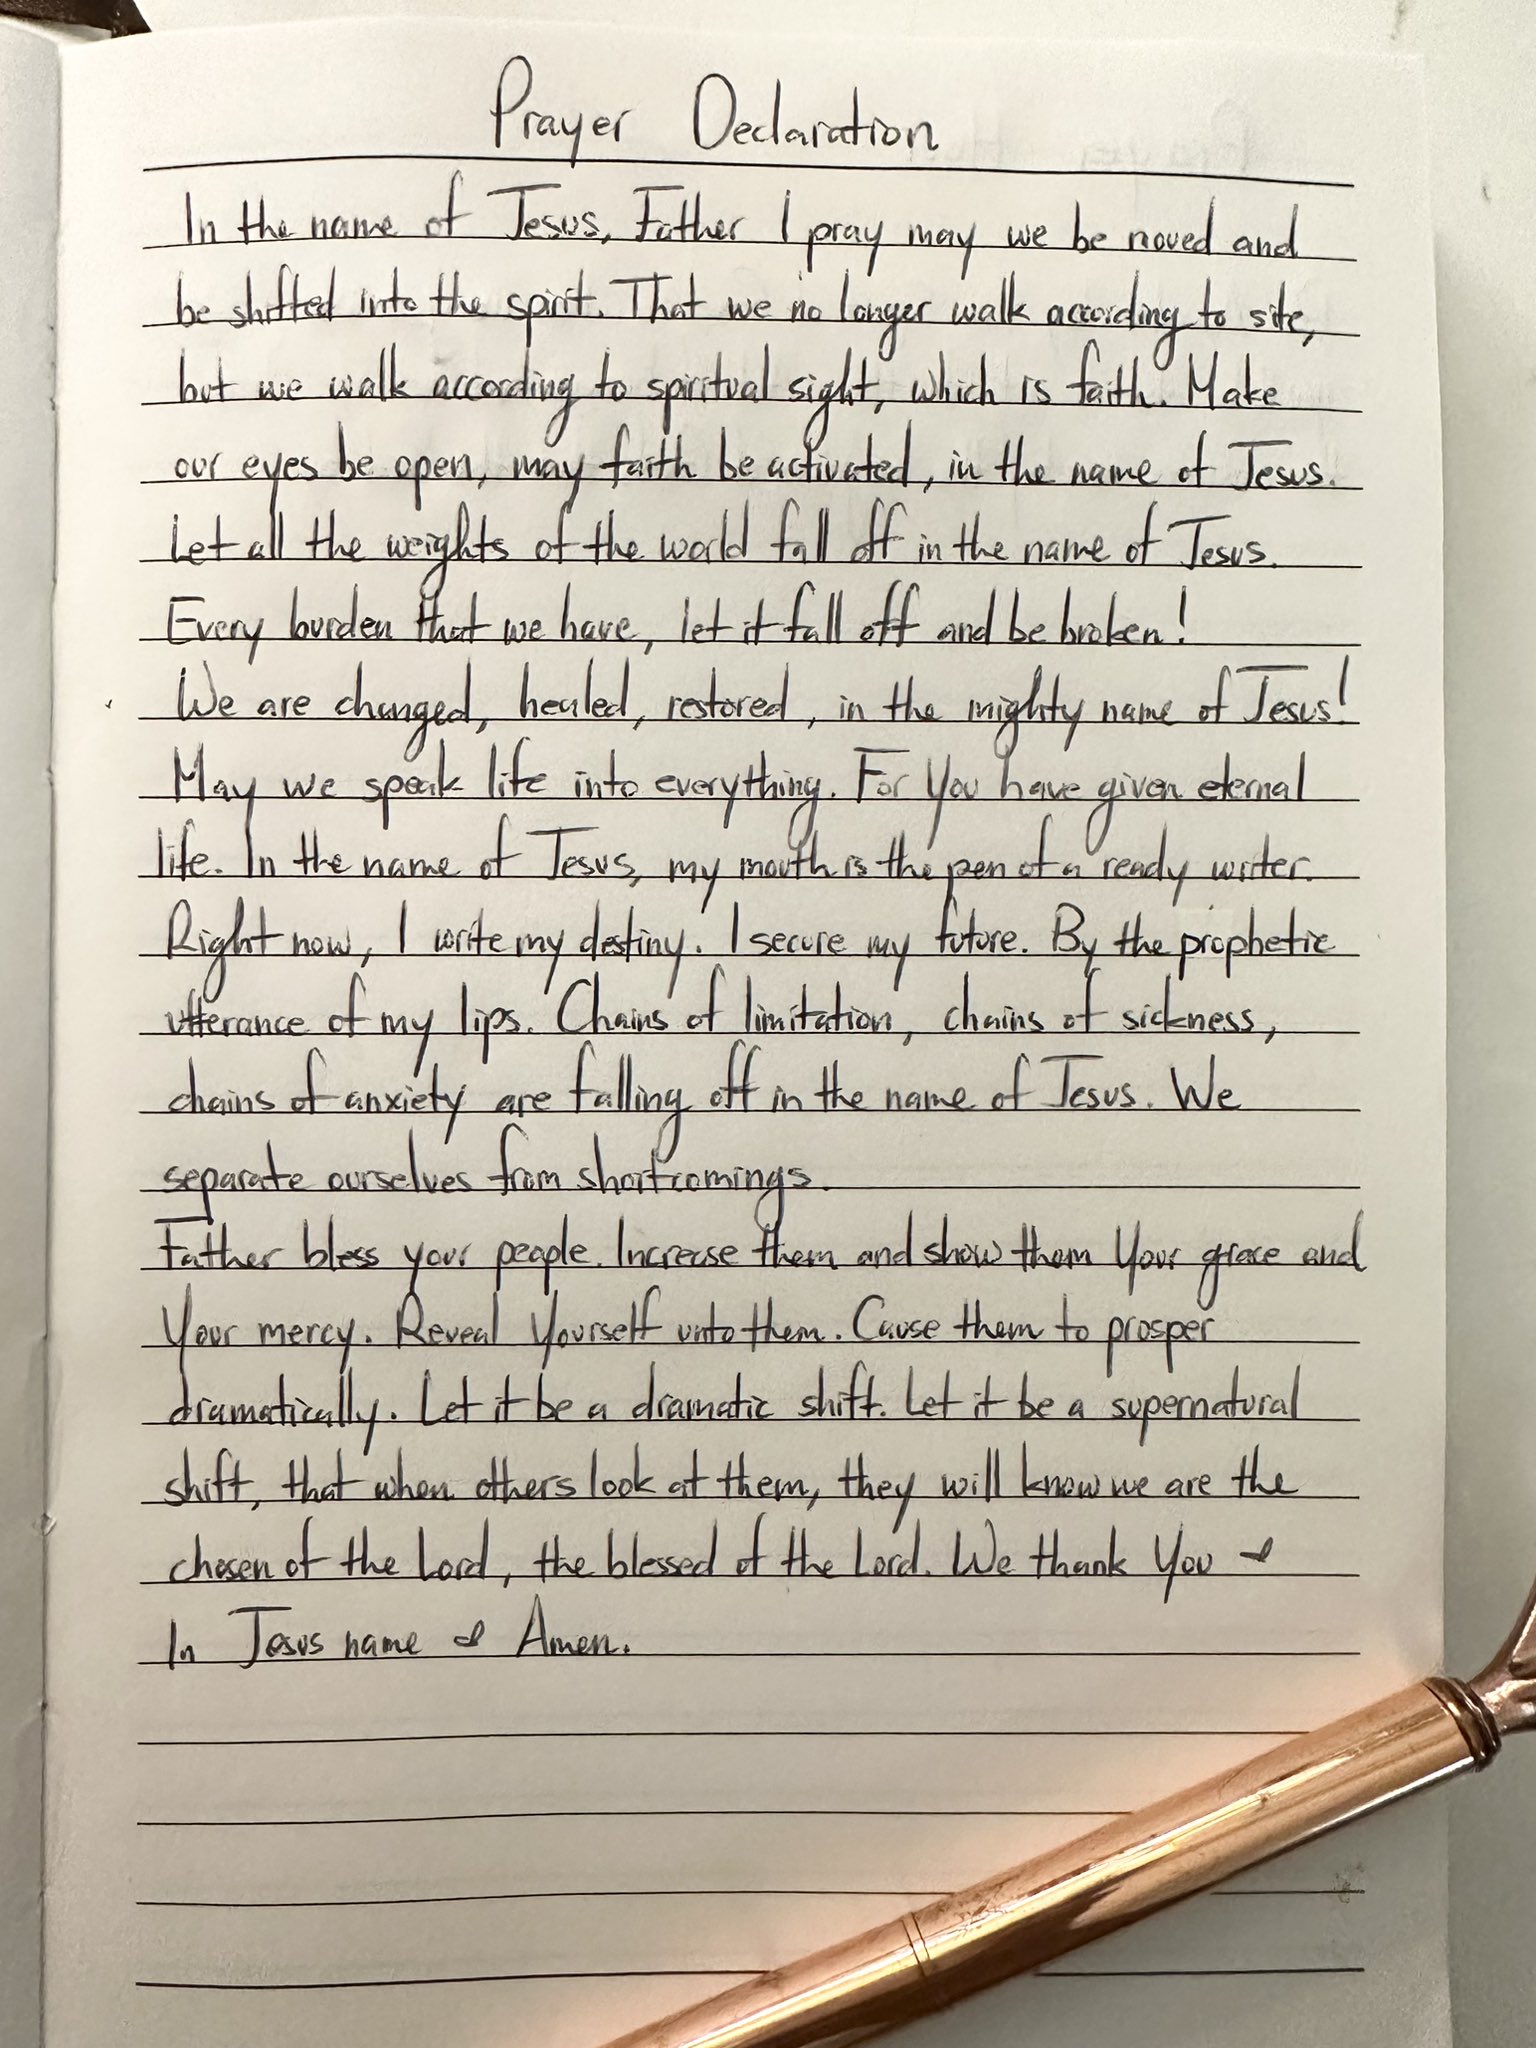 Prayer Declaration
In the name of Jesus, Father I pray may we be moved and
be shifted into the spirit. That we no longer walk according to site,
but we walk according to spiritual sight, which is faith. Make
our eyes be open, may faith be activated, in the name of Jesus.
Let all the weights of the world fall off in the name of Jesus.
Every burden that we have, let it fall off and be broken!
We are changed, healed, restored, in the mighty name of Jesus!
May we speak life into everything. For You have given eternal
life. In the name of Jesus, my mouth is the pen of a ready writer.
Right now, I write my destiny. I secure my future. By the prophetic
utterance of my lips. Chains of limitation, chains of sickness,
chains of anxiety are falling off in the name of Jesus. We
separate ourselves from shortcomings.
Father bless your people. Increase them and show them Your grace and
Your mercy. Reveal Yourself unto them. Cause them to prosper
dramatically. Let it be a dramatic shift. Let it be a supernatural
shift, that when others look at them, they will know we are the
chosen of the Lord, the blessed of the Lord. We thank You
In Jesus name Amen.